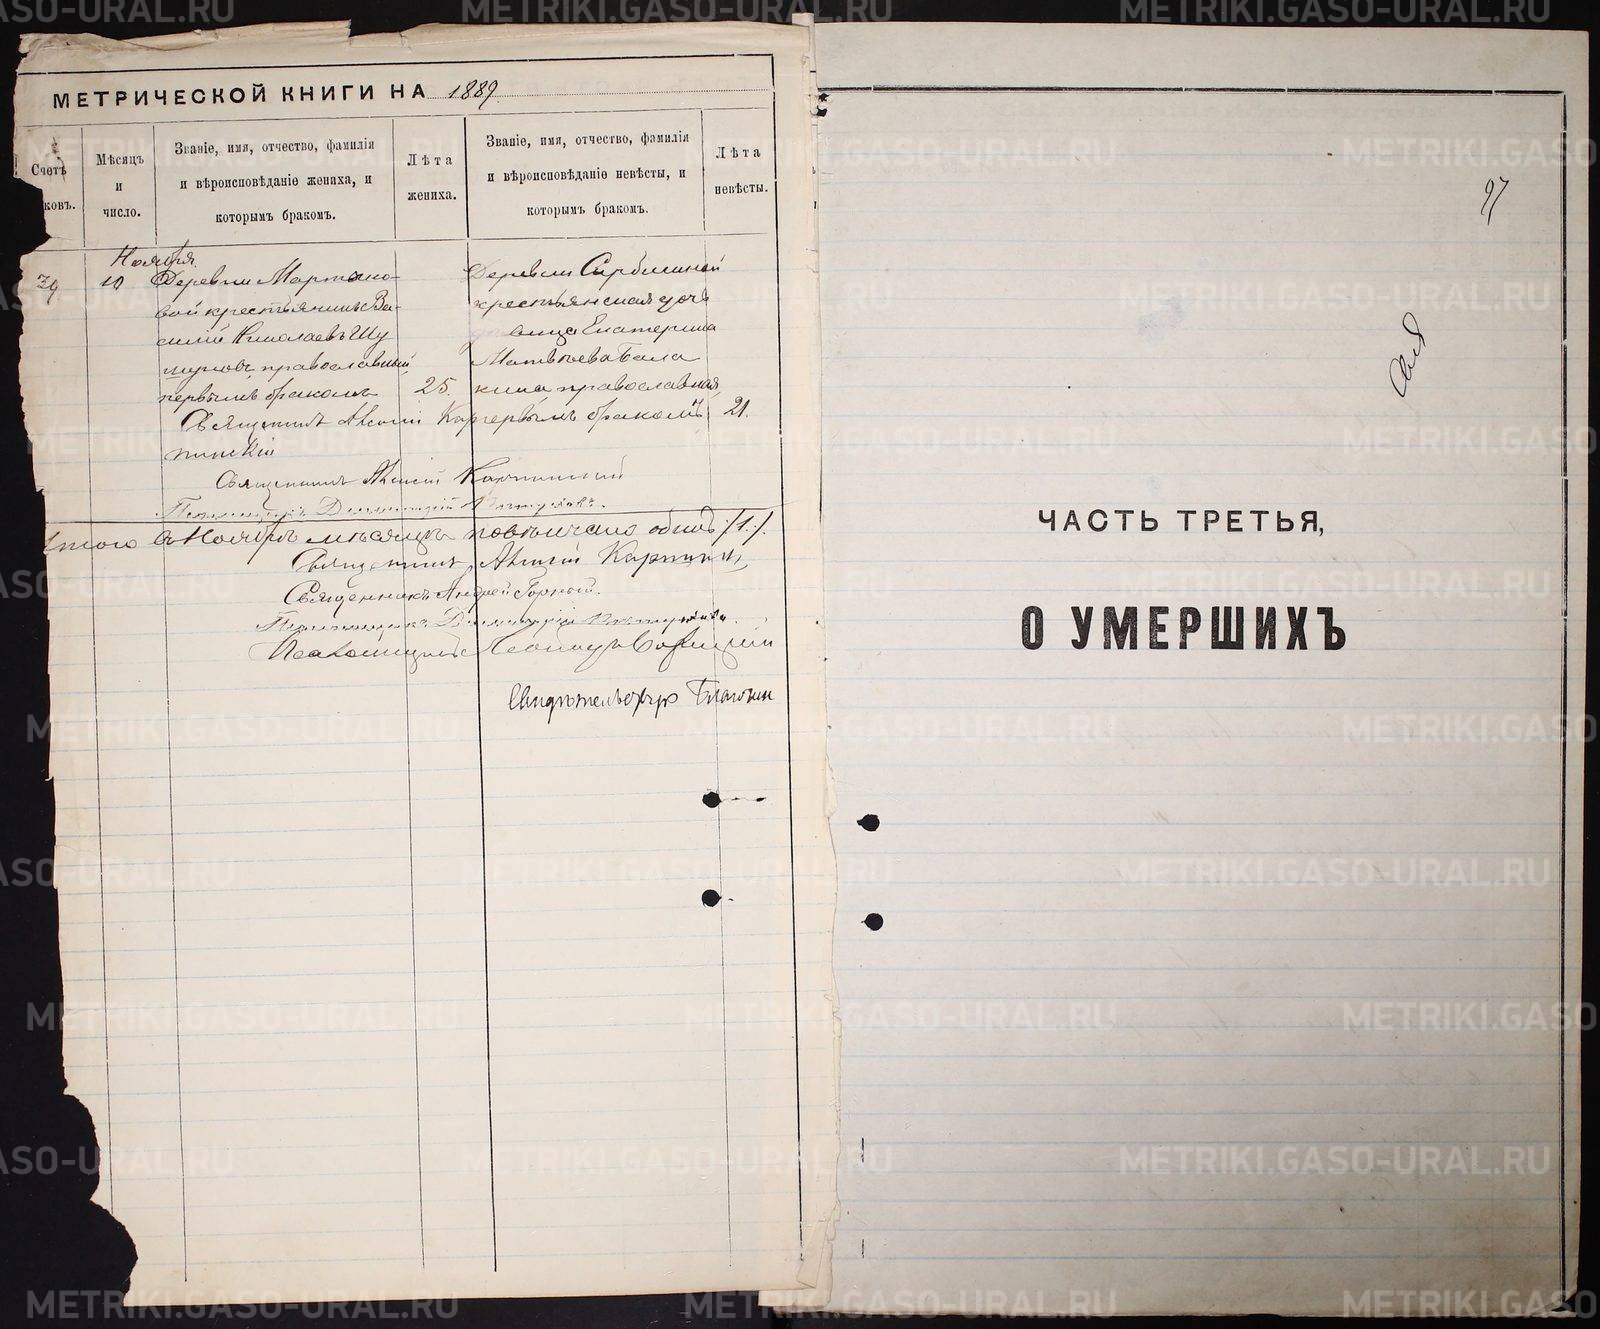 МЕТРИЧЕСКОЙ КНИГИ НА 1889
Счетъ
ковъ.
Мѣсяцъ
и
число.
Званіе, имя, отчество, фамилія
и вѣроисповѣданіе жениха, и
которымъ бракомъ.
Лѣта
жениха.
Званіе, имя, отчество, фамилія
и вѣроисповѣданіе невѣсты, и
которымъ бракомъ.
Лѣта
невѣсты.
Ноября
39
10
Деревни Мартыно-
вой крестьянинъ Ва-
силій Николаевъ Шу
православный
первымъ бракомъ
25.
Деревни
крестьянская дочь
дѣвица Екатерина
Матвѣева Бала
кина православная
первымъ бракомъ
21.
Священникъ Алексій Кар
пинскій
Священникъ Алексій Карпинскій
Псаломщикъ Димитрій
Итого въ Ноябрѣ мѣсяцѣ повѣнчано одинъ /1/.
Священникъ Алексій Карпинск
Священникъ Андрей Горный.
Псаломщикъ Димитрій
Псаломщикъ Леонидъ
Свидѣтельствую Благочин
97
ЧАСТЬ ТРЕТЬЯ,
О УМЕРШИХЪ
METRIKI.GASO-URAL.RU